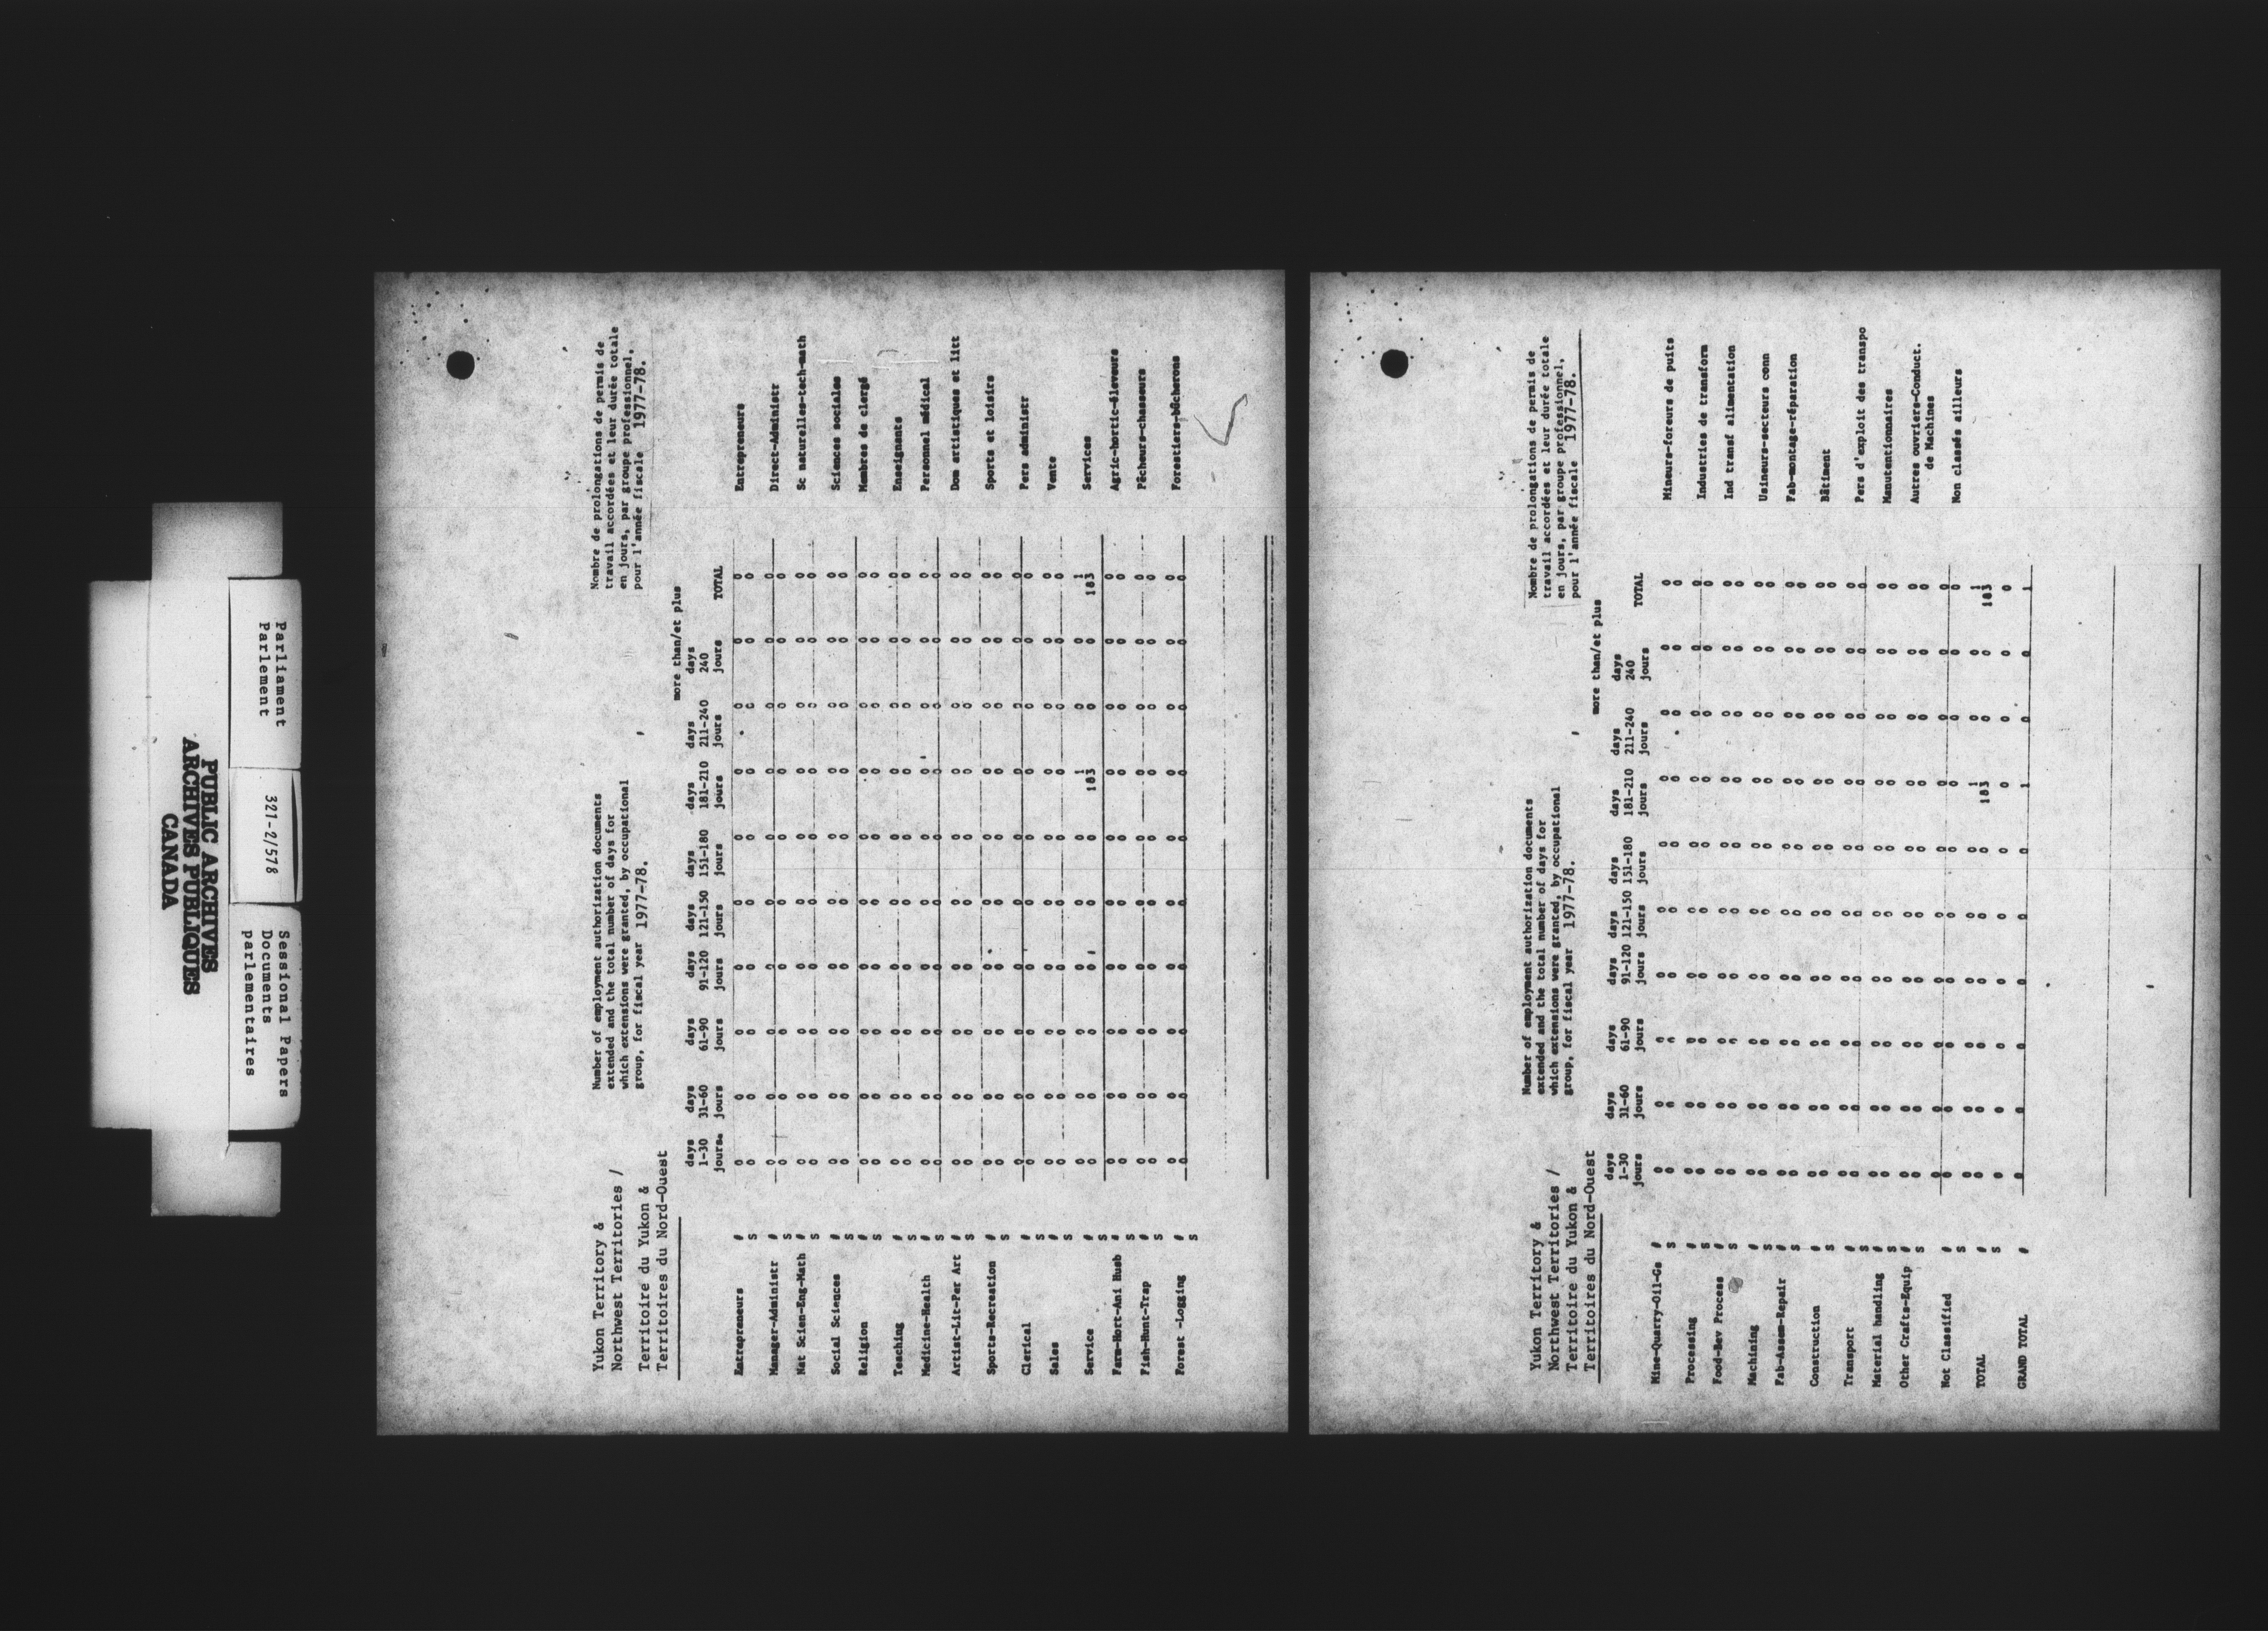 Parliament
Parlement
321-2/578
Sessional Papers
Documents
parlementaires
PUBLIC ARCHIVES
ARCHIVES PUBLIQUES
CANADA
Yukon Territory &
Northwest Territories /
Territoire du Yukon &
Territoires du Nord-Ouest
Number of employment authorization documents
extended and the total number of days for
which extensions were granted, by occupational
group, for fiscal year 1977-78.
Nombre de prolongations de permis de
travail accordées et leur durée totale
en jours, par groupe professionnel,
pour l'année fiscale 1977-78.
more than/et plus
days days days days days days days days days
1-30 31-60 61-90 91-120 121-150 151-180 181-210 211-240 240
jours jours jours jours jours jours jours jours jours TOTAL
Entrepreneurs # 0 0 0 0 0 0 0 0 0 0 Entrepreneurs
S 0 0 0 0 0 0 0 0 0 0
Manager-Administr # 0 0 0 0 0 0 0 0 0 0 Direct-Administr
S 0 0 0 0 0 0 0 0 0 0
Nat Scien-Eng-Math # 0 0 0 0 0 0 0 0 0 0 Sc naturelles-tech-math
S 0 0 0 0 0 0 0 0 0 0
Social Sciences # 0 0 0 0 0 0 0 0 0 0 Sciences sociales
S 0 0 0 0 0 0 0 0 0 0
Religion # 0 0 0 0 0 0 0 0 0 0 Membres de clergé
S 0 0 0 0 0 0 0 0 0 0
Teaching # 0 0 0 0 0 0 0 0 0 0 Enseignants
S 0 0 0 0 0 0 0 0 0 0
Medicine-Health # 0 0 0 0 0 0 0 0 0 0 Personnel médical
S 0 0 0 0 0 0 0 0 0 0
Artist-Lit-Per Art # 0 0 0 0 0 0 0 0 0 0 Dom artistiques et litt
S 0 0 0 0 0 0 0 0 0 0
Sports-Recreation # 0 0 0 0 0 0 0 0 0 0 Sports et loisirs
S 0 0 0 0 0 0 0 0 0 0
Clerical # 0 0 0 0 0 0 0 0 0 0 Pers administr
S 0 0 0 0 0 0 0 0 0 0
Sales # 0 0 0 0 0 0 0 0 0 0 Vente
S 0 0 0 0 0 0 0 0 0 0
Service # 0 0 0 0 0 0 1 0 0 1 Services
S 0 0 0 0 0 0 183 0 0 183
Farm-Hort-Ani Husb # 0 0 0 0 0 0 0 0 0 0 Agric-hortic-éleveurs
S 0 0 0 0 0 0 0 0 0 0
Fish-Hunt-Trap # 0 0 0 0 0 0 0 0 0 0 Pêcheurs-chasseurs
S 0 0 0 0 0 0 0 0 0 0
Forest -Logging # 0 0 0 0 0 0 0 0 0 0 Forestiers-bûcherons
S 0 0 0 0 0 0 0 0 0 0
Yukon Territory &
Northwest Territories /
Territoire du Yukon &
Territoires du Nord-Ouest
Number of employment authorization documents
extended and the total number of days for
which extensions were granted, by occupational
group, for fiscal year 1977-78.
Nombre de prolongations de permis de
travail accordées et leur durée totale
en jours, par groupe professionnel,
pour l'année fiscale 1977-78.
more than/et plus
days days days days days days days days days
1-30 31-60 61-90 91-120 121-150 151-180 181-210 211-240 240
jours jours jours jours jours jours jours jours jours TOTAL
Mine-Quarry-Oil-Gs # 0 0 0 0 0 0 0 0 0 0 Mineurs-foreurs de puits
S 0 0 0 0 0 0 0 0 0 0
Processing # 0 0 0 0 0 0 0 0 0 0 Industries de transform
S 0 0 0 0 0 0 0 0 0 0
Food-Bev Process # 0 0 0 0 0 0 0 0 0 0 Ind transf alimentation
S 0 0 0 0 0 0 0 0 0 0
Machining # 0 0 0 0 0 0 0 0 0 0 Usineurs-secteurs conn
S 0 0 0 0 0 0 0 0 0 0
Fab-Assem-Repair # 0 0 0 0 0 0 0 0 0 0 Fab-montage-réparation
S 0 0 0 0 0 0 0 0 0 0
Construction # 0 0 0 0 0 0 0 0 0 0 Bâtiment
S 0 0 0 0 0 0 0 0 0 0
Transport # 0 0 0 0 0 0 0 0 0 0 Pers d'exploit des transpo
S 0 0 0 0 0 0 0 0 0 0
Material handling # 0 0 0 0 0 0 0 0 0 0 Manutentionnaires
S 0 0 0 0 0 0 0 0 0 0
Other Crafts-Equip # 0 0 0 0 0 0 0 0 0 0 Autres ouvriers-Conduct.
S 0 0 0 0 0 0 0 0 0 0 de Machines
Not Classified # 0 0 0 0 0 0 0 0 0 0 Non classés ailleurs
S 0 0 0 0 0 0 0 0 0 0
TOTAL # 0 0 0 0 0 0 1 0 0 1
S 0 0 0 0 0 0 183 0 0 183
0 0 0 0 0 0 0 0 0 0
GRAND TOTAL # 0 0 0 0 0 0 1 0 0 1